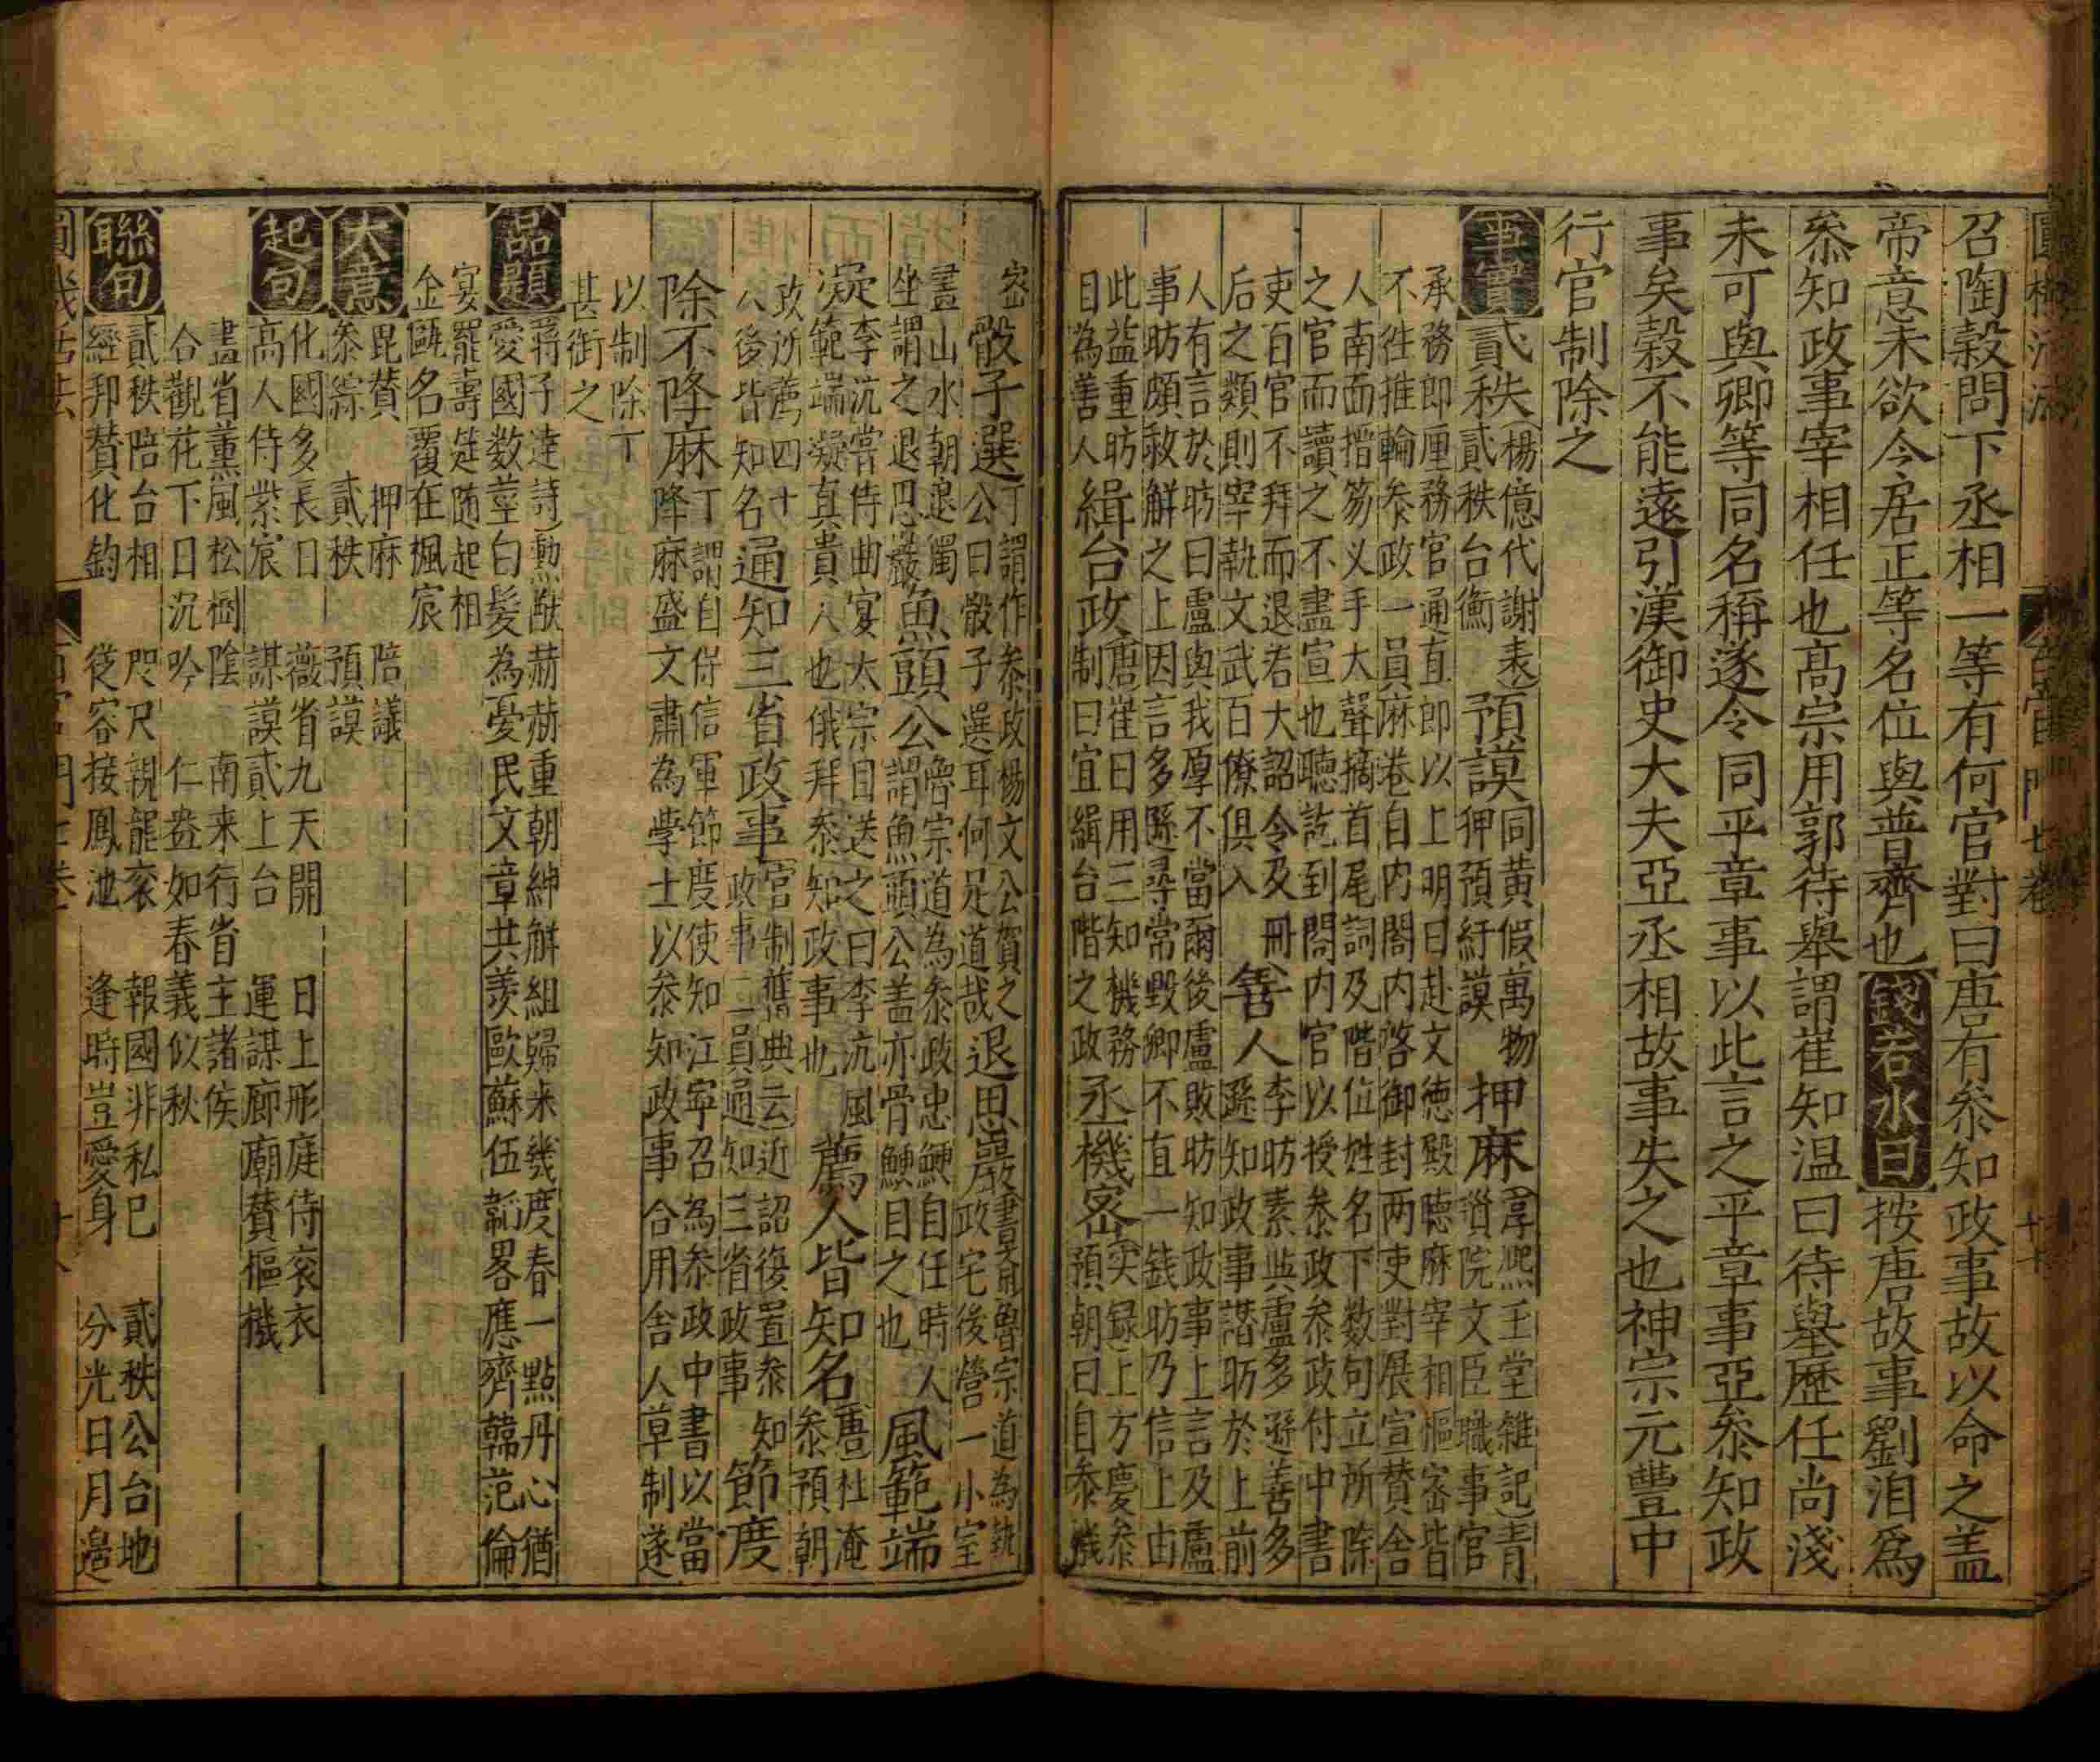 召陶榖問下丞相一等有何官對曰唐有叅知政事故以命之盖
帝意未欲令居正等名位與普齊也錢若水曰按唐故事劉洎爲
叅知政事宰相任也髙宗用郭待舉謂崔知温曰待舉歷任尚淺
未可與卿等同名稱遂令同平章事以此言之平章事亞叅知政
事矣榖不能遠引漢御史大夫亞丞相故事失之也神宗元豊中
行官制除之
事實
貳秩
楊億代謝表
貳秩台衡
預謨
同黄假萬物
押預紆謨
押麻
淳熈玉堂雜記青
瑣院文臣職事官
承務郎厘務官通直郎以上明日赴文德殿聴麻宰相樞宻皆
不徃推輪叅政一員麻卷自内閤内啓御封两吏對展宣賛舎
人南面搢笏义手大聲摘首尾詞及階位姓名下数句立所除
之官而讀之不盡宣也聴訖到閤内官以授叅政叅政付中書
吏百官不拜而退若大詔令及冊
后之類則宰執文武百僚俱入
善人
李昉素與盧多遜善多
遜知政事譖昉於上前
人有言於昉曰盧與我厚不當爾後盧敗昉知政事上言及盧
事昉頗救解之上因言多遜尋常毁卿不直一錢昉乃信上由
此益重昉
目為善人
緝台政
唐崔曰用三知機務
制曰宜緝台階之政
丞機密
实録上方慶叅
預朝曰自叅機
宻
骰子選
丁謂作叅政楊文公賀之
公曰骰子選耳何足道哉
退思巖
書奠用魯宗道為執
政宅後營一小室
畫山水朝退獨
坐謂之退思巖
魚頭公
魯宗道為叅政忠鯁自任時人
謂魚頭公盖亦骨鯁目之也
風範端
凝
李沆嘗侍曲宴太宗目送之曰李沆風
範端凝真貴人也俄拜叅知政事也
薦人皆知名
唐杜淹
叅預朝
政所薦四十
人後皆知名
通知三省政事
官制舊典云近詔復置叅知
政事二員通知三省政事
節度
除不降麻
丁謂自保信軍節度使知江寧召為叅政中書以當
降麻盛文肅為學士以叅知政事合用舎人草制遂
以制除丁
甚銜之
品題
蒋子逹詩勲猷赫赫重朝紳觧組歸来幾度春一點丹心猶
愛國数莖白髮為憂民文章共羡歐蘇伍韜畧應齊韓范倫
宴罷壽筵随起相
金甌名覆在楓宸
大意
毘賛　押麻　陪議
叅綜　貳秩　預謨
起句
化國多長日　薇省九天開　日上彤庭侍衮衣
髙人侍紫宸　謀謨貳上台　運謀廊廟賛樞機
畫省薫風松樹陰　南来行省主諸侯
合觀花下日沉吟　仁㳟如春義似秋
聯句
貳秩陪台相　咫尺親龍衮　報國非私已　貳秩公台地
經邦賛化鈞　從容接鳳池　逢時豈愛身　分光日月邉